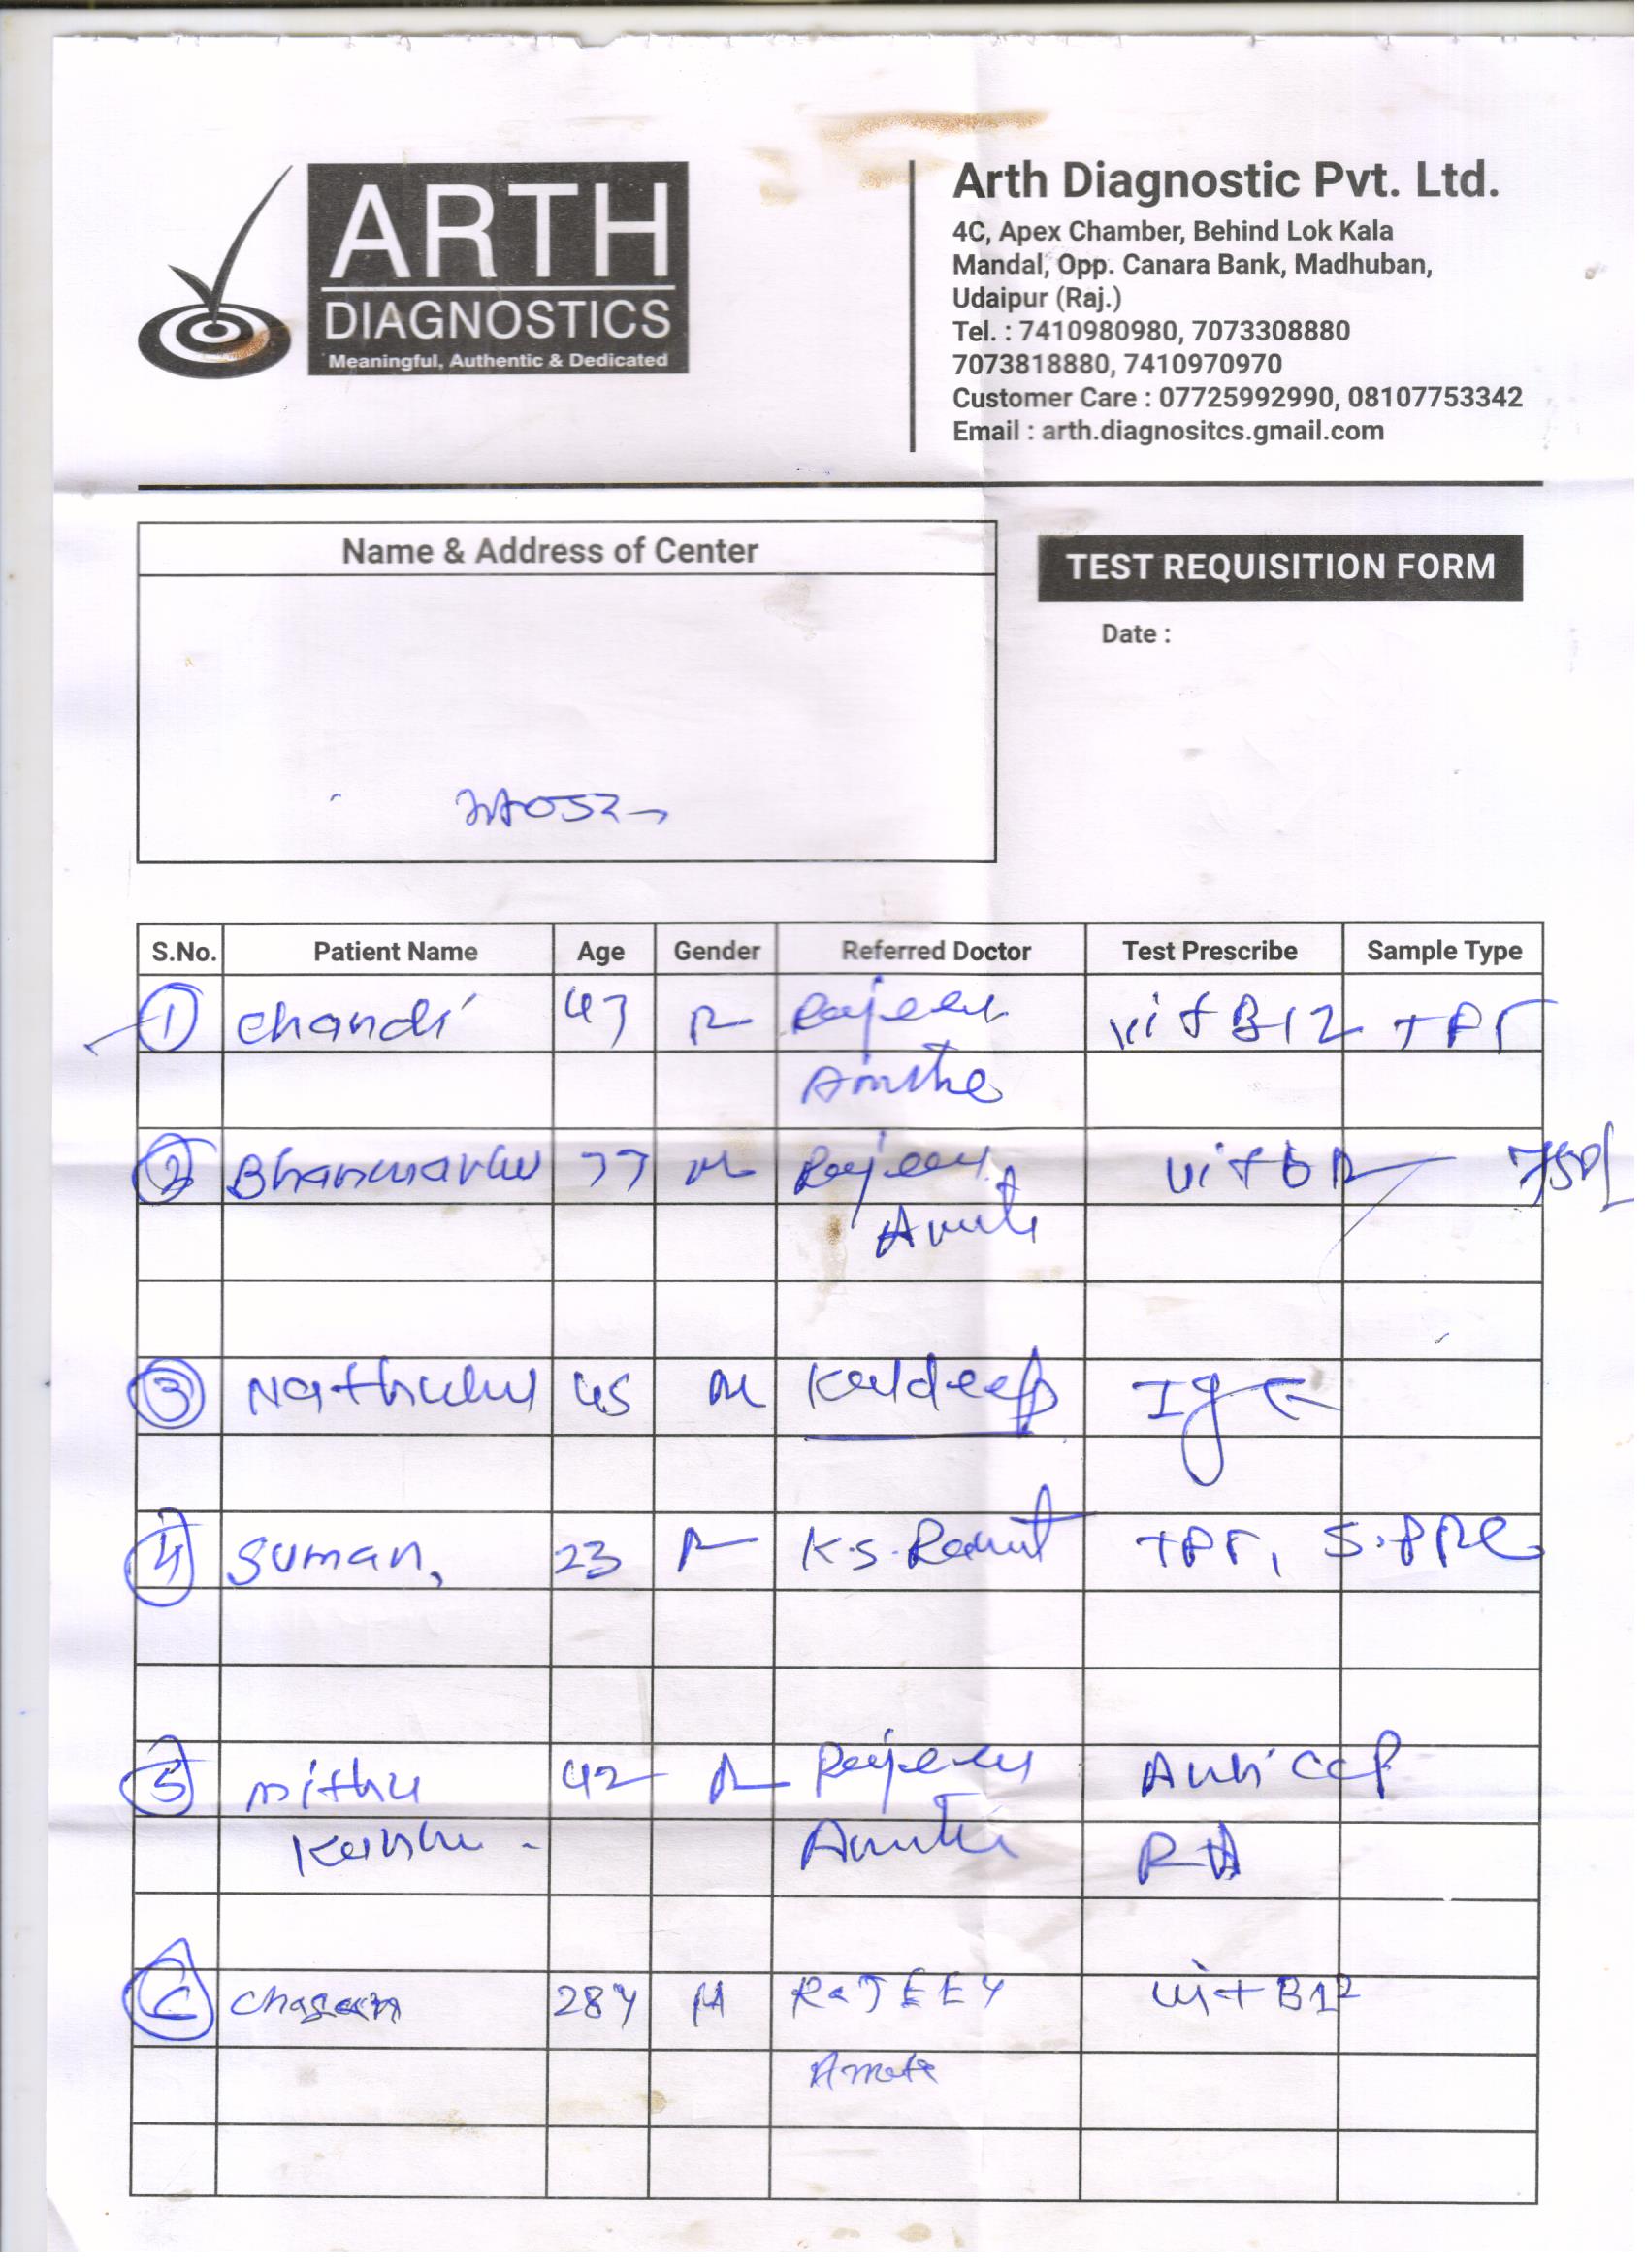 ARTH
DIAGNOSTICS
Meaningful, Authentic & Dedicated
Arth Diagnostic Pvt. Ltd.
4C, Apex Chamber, Behind Lok Kala
Mandal, Opp. Canara Bank, Madhuban,
Udaipur (Raj.)
Tel. : 7410980980, 7073308880
7073818880, 7410970970
Customer Care : 07725992990, 08107753342
Email : arth.diagnositcs.gmail.com
Name & Address of Center
TEST REQUISITION FORM
Date :
S.No. Patient Name Age Gender Referred Doctor Test Prescribe Sample Type
1 Chandi 43 Rajeev vit B12
2 77 M Rajeev vit B12
3 Nathulal 45 M Kuldeep IgE
4 Suman, 23 K.S. S.PRL
5 mithu 42 Rajeev Anti CCP
RA
6 Chagan 28Y M RAJEEV vit B12